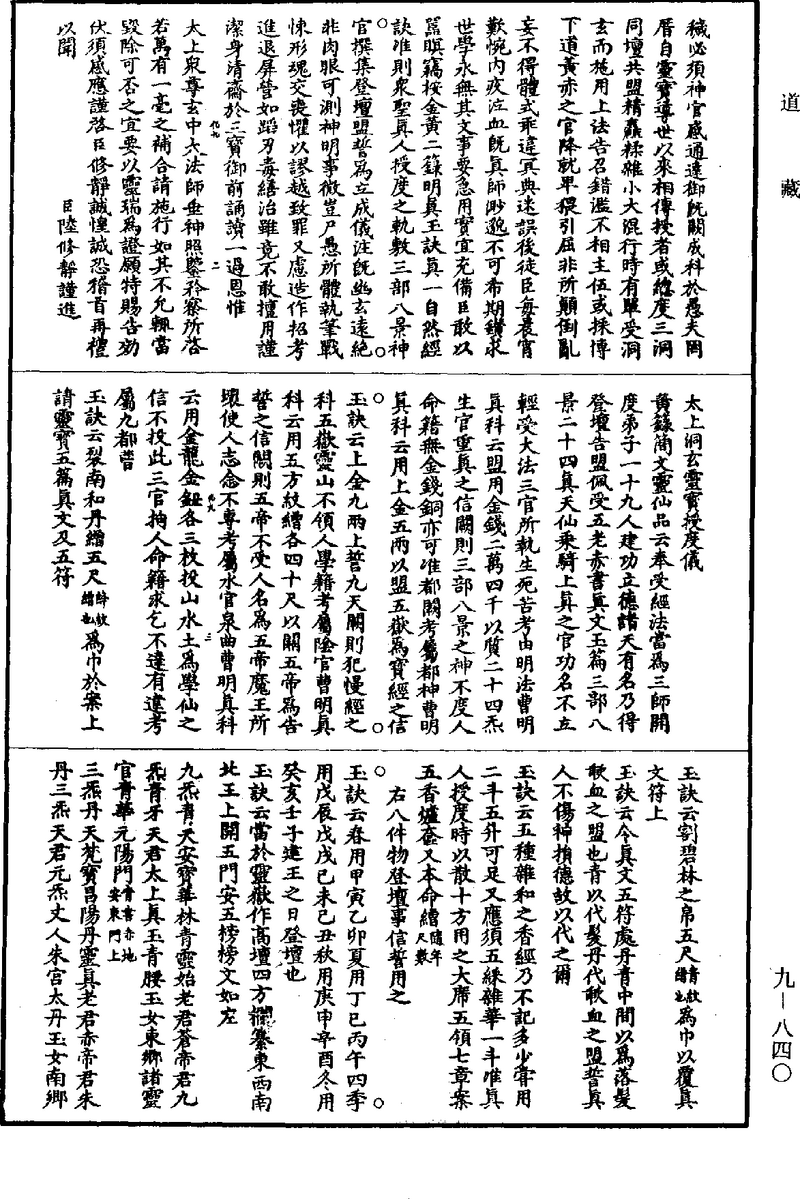 道藏
穢必須神官感通達御既闕成科於愚夫罔
厝自靈寶導世以來相傳授者或總度三洞
同壇共盟精麤糅雜小大混行時有單受洞
玄而施用上法告召錯濫不相主伍或採博
下道黃赤之官降就卑猥引屈非所顛倒亂
妄不得體式乖違冥典迷誤後徒臣每晨宵
歎惋內疚泣血既眞師渺邈不可希期鑽求
世學永無其文事要急用實宜充備臣敢以
䁾瞑竊按金黃二籙明眞玉訣眞一自然經
訣准則衆聖眞人授度之軌敷三部八景神
官撰集登壇盟誓爲立成儀注既幽玄遠絶
非肉眼可測神明事微豈尸愚所體執筆戰
悚形魂交喪懼以謬越致罪又慮造作招考
進退屏營如蹈刃毒繕治雖竟不敢擅用謹
潔身清齋於三寶御前誦讀一過恩惟
太上衆尊玄中大法師垂神照鑒矜察所啓
若萬有一毫之補合請施行如其不允輒當
毀除可否之宜要以靈瑞爲證願特賜告劾
伏須感應謹啓臣修靜誠惶誠恐稽首再禮
以聞 臣陸修靜謹進
太上洞玄靈寶授度儀
黃籙簡文靈仙品云奉受經法當爲三師開
度弟子一十九人建功立德諸天有名乃得
登壇告盟佩受五老赤書眞文玉篇三部八
景二十四眞天仙乘騎上眞之官功名不立
輕受大法三官所執生死苦考由明法曹明
眞科云盟用金錢二萬四千以質二十四炁
生官重眞之信闕則三部八景之神不度人
命籍無金錢銅亦可准都闕考屬都神曹明
眞科云用上金五兩以盟五嶽爲寶經之信
玉訣云上金九兩上誓九天闕則犯慢經之
科五嶽靈山不領人學籍考屬陰官曹明眞
科云用五方紋繒各四十尺以關五帝爲告
誓之信闕則五帝不受人名爲五帝魔王所
壞使人志念不專考屬水官泉曲曹明眞科
云用金龍金鈕各三枚投山水土爲學仙之
信不投此三官拘人命籍求乞不達有違考
屬九都曹
玉訣云裂南和丹繒五尺絳紋繒也爲巾於案上
請靈寶五篇眞文及五符
玉訣云割碧林之帛五尺青紋繒也爲巾以覆眞
文符上
玉訣云令眞文五符處丹青中間以爲落髮
歃血之盟也青以代髮丹代歃血之盟誓眞
人不傷神損德故以代之爾
玉訣云五種雜和之香經乃不記多少當用
二斗五升可足又應須五綵雜華一斗准眞
人授度時以散十方用之大席五領七章案
五香爐奩又本命繒隨年尺數
右八件物登壇事信誓用之
玉訣云春用甲寅乙卯夏用丁巳丙午四季
用戊辰戊戌己未己丑秋用庚申辛酉冬用
癸亥壬子建王之日登壇也
玉訣云當於靈嶽作高壇四方欄纂東西南
北王上開五門安五榜榜文如左
九炁青天安寶華林青靈始老君蒼帝君九
炁青牙天君太上眞玉青腰玉女東鄉諸靈
官青華元陽門青書赤地安東門上
三炁丹天梵寶昌陽丹靈眞老君赤帝君朱
丹三炁天君元炁丈人朱宮太丹玉女南鄉
九—八四〇